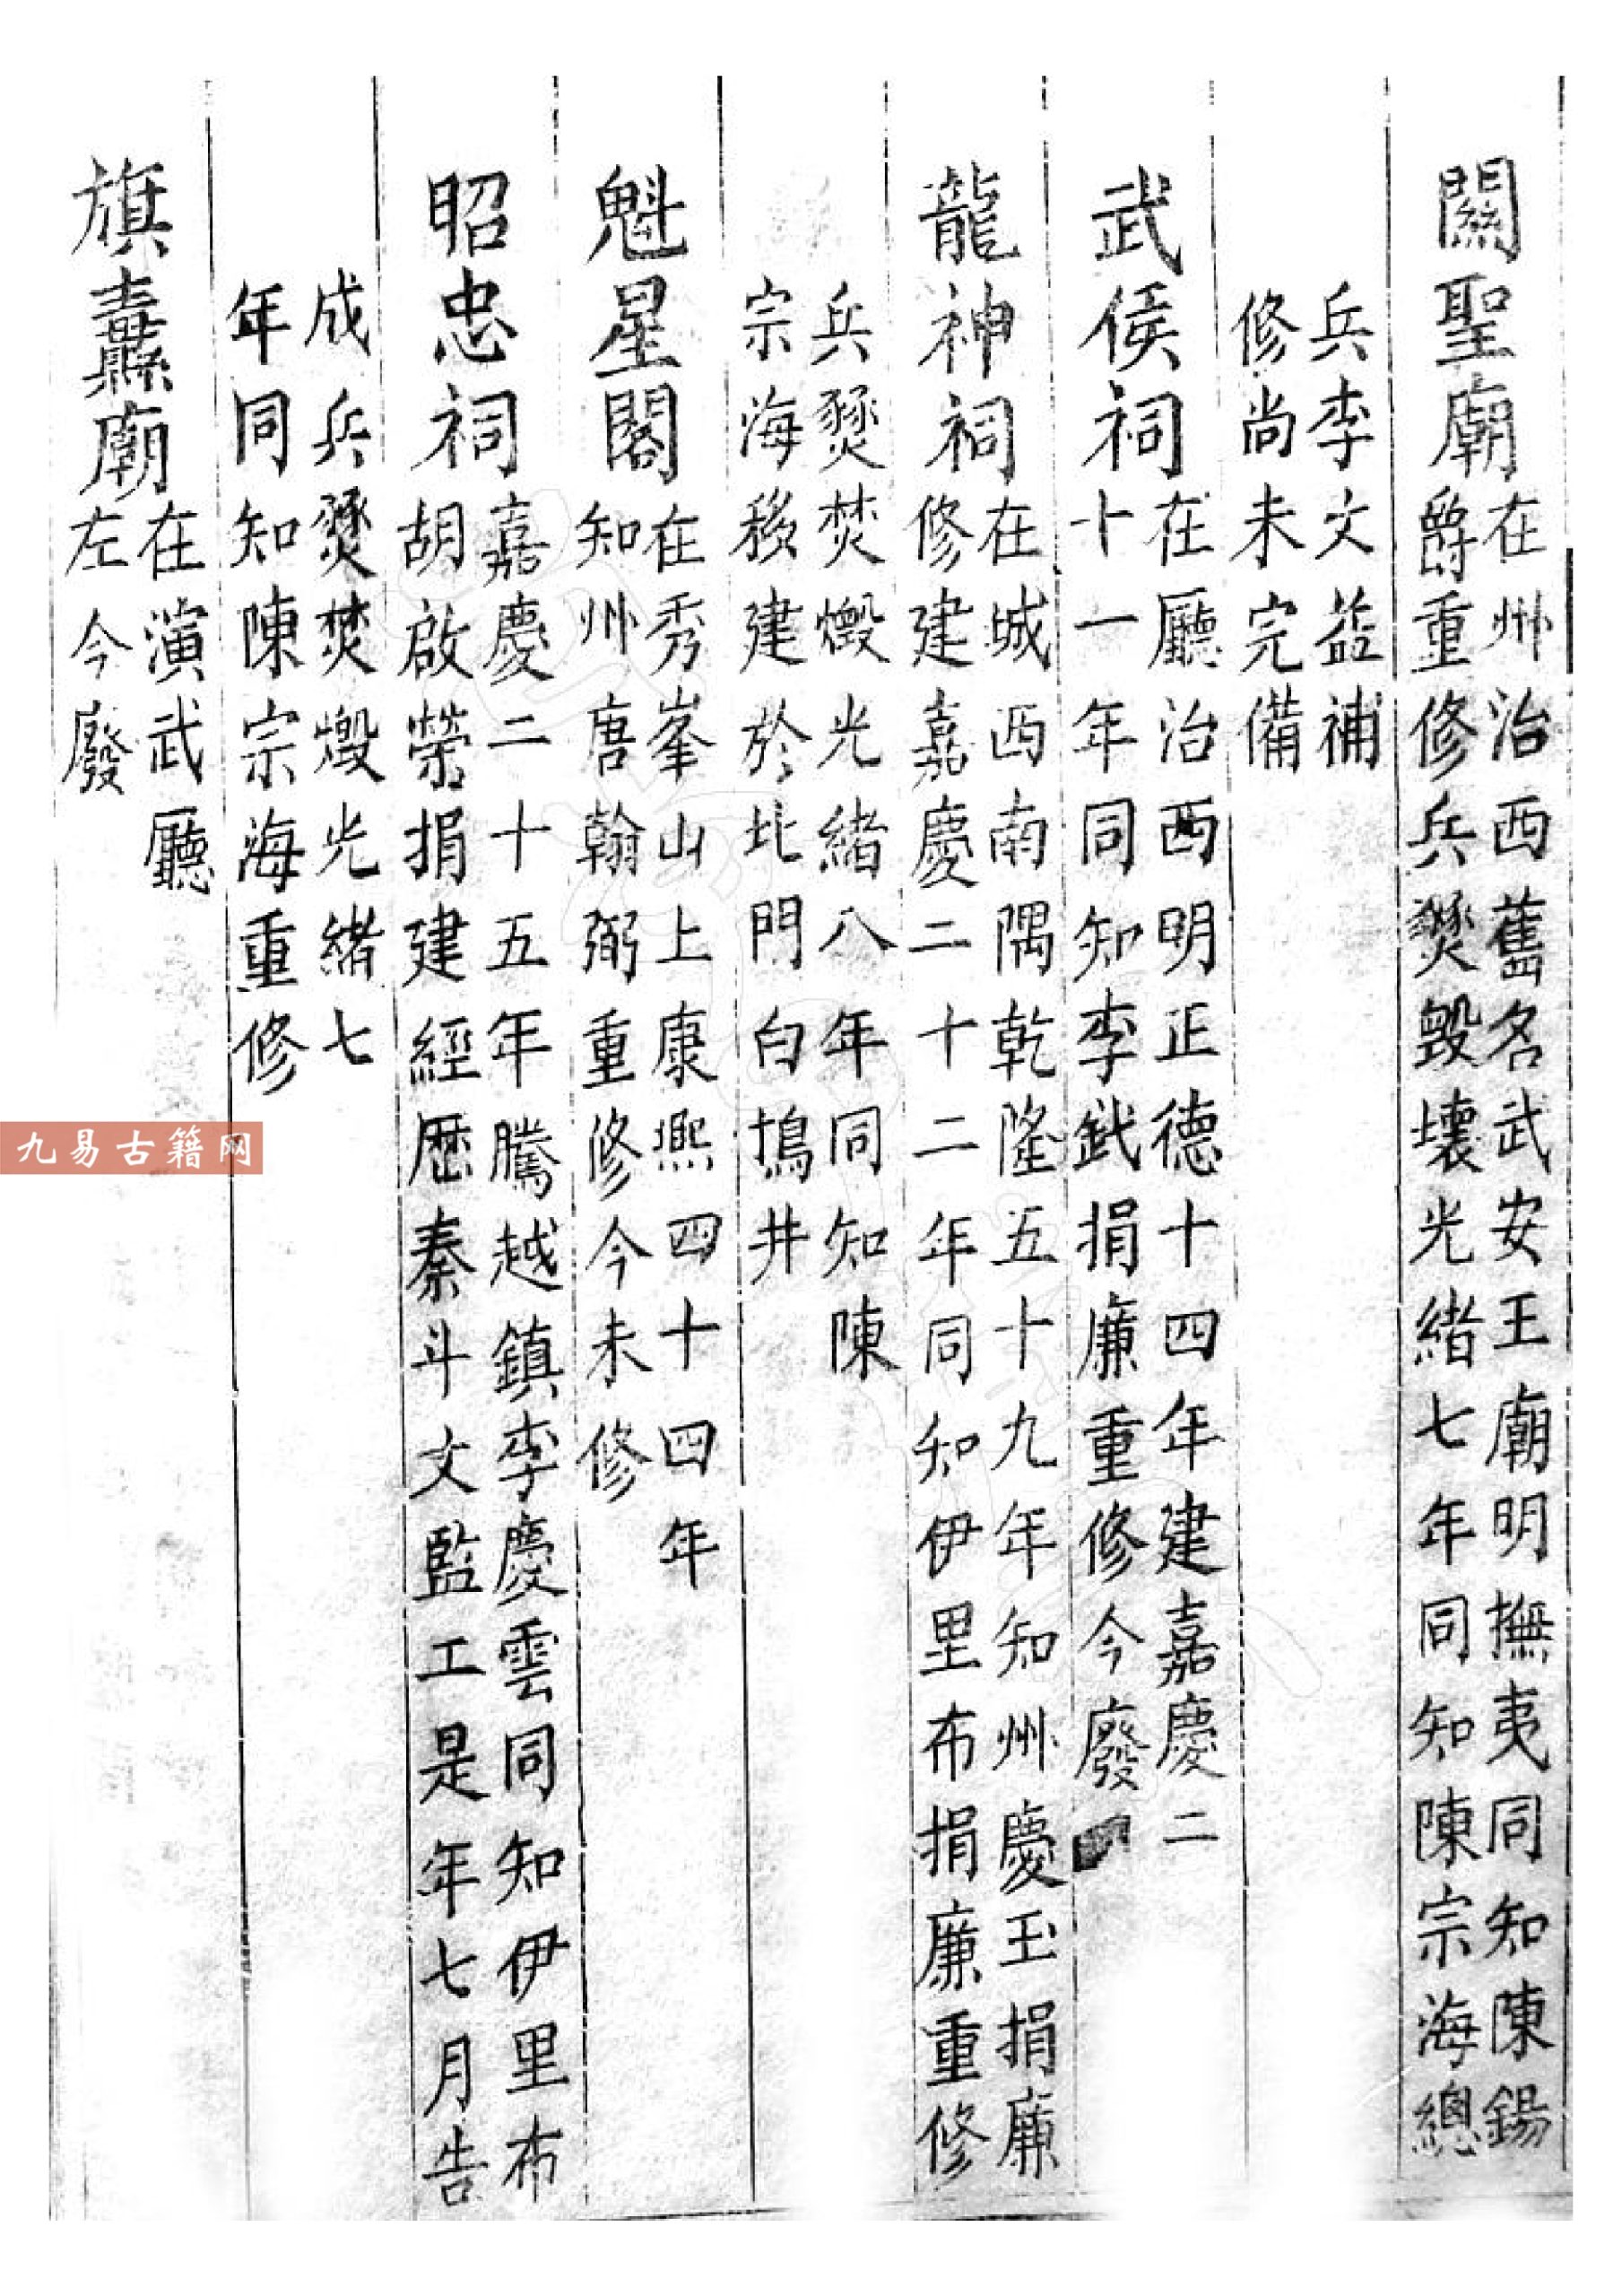 關聖廟
在州治西舊名武安王廟明撫夷同知陳錫
爵重修兵燹毁壞光緒七年同知陳宗海總
兵李文益補
修尚未完備
武侯祠
在廳治西明正德十四年建嘉慶二
十一年同知李㦸捐廉重修今廢
龍神祠
在城西南隅乾隆五十九年知州慶玉捐廉
修建嘉慶二十二年同知伊里布捐廉重修
兵燹焚燬光緒八年同知陳
宗海移建於北門白鴣井
魁星閣
在秀峯山上康熙四十四年
知州唐翰弼重修今未修
昭忠祠
嘉慶二十五年騰越鎮李慶雲同知伊里布
胡啟榮捐建經歷秦斗文監工是年七月告
成兵燹焚燬光緒七
年同知陳宗海重修
旗纛廟
在演武廳
左今廢
九易古籍网